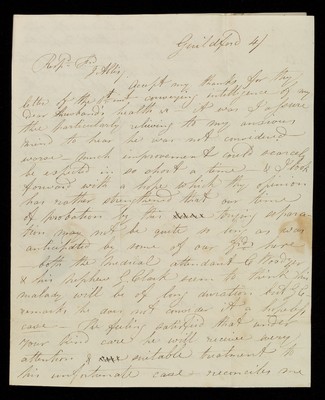 Guildford 4/
Respd. Fd.
J Allis
Accept my thanks for thy
letter of the 1st inst conveying intelligence of my
dear Husbands health &c - it was I assure
thee particularly relieving to my anxious
mind to hear he was not considered
worse - much improvement could scarcely
be expected in so short a time - & I look
forward with a hope which thy opinion
has rather strengthened that our time
of probation by this trying separa-
tion may not be quite so long as was
anticipated by some of our Fds. here
- both the medical attendant C
& his nephew J. Clark seem to think this
malady will be of long duration but C
remarks he does not consider it a hopeless
case - I'm feeling satisfied that under
your kind care he will receive every
attention & suitable treatment to
his unfortunate case reconciles me